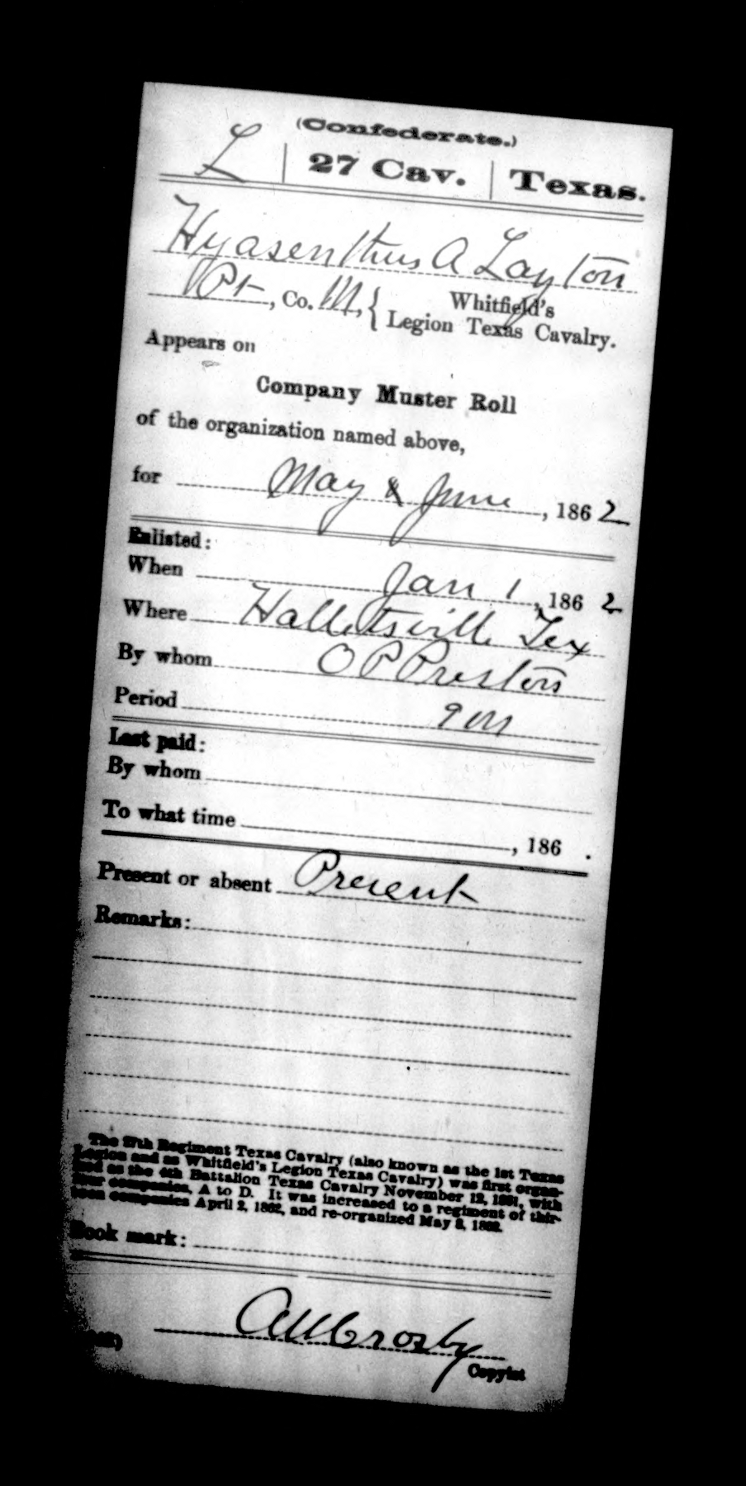 (Confederate.)
L | 27 Cav. | Texas.
Hyasenthus A Layton
Pt, Co. M, { Whitfield's
Legion Texas Cavalry.
Appears on
Company Muster Roll
of the organization named above,
for May & June, 1862
Enlisted:
When Jan 1, 1862
Where Halletsville Tex
By whom O P Preston
Period
Last paid:
By whom
To what time , 186 .
Present or absent Present
Remarks:
The 27th Regiment Texas Cavalry (also known as the 1st Texas
Legion and as Whitfield's Legion Texas Cavalry) was first organ-
ized as the 4th Battalion Texas Cavalry November 12, 1861, with
four companies, A to D. It was increased to a regiment of thir-
teen companies April 2, 1862, and re-organized May 8, 1862.
Book mark:
Crosby
Copyist